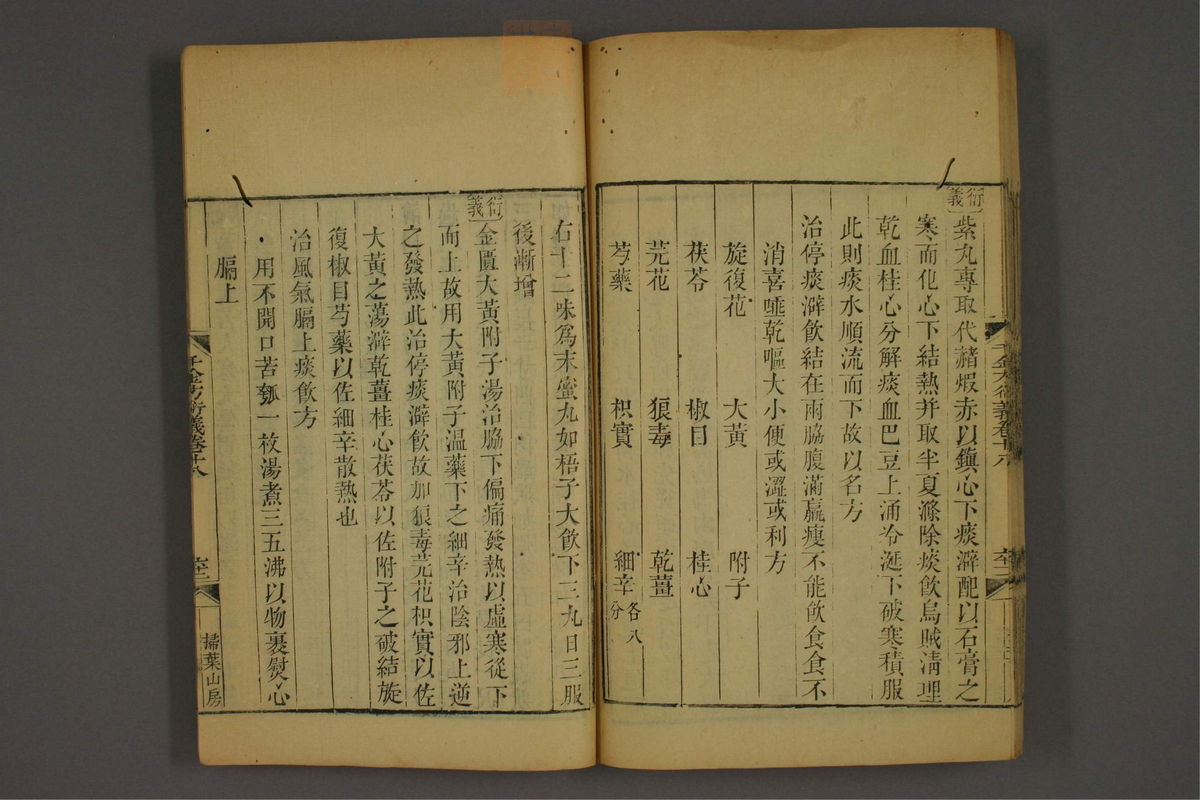 衍義
紫丸專取代赭煆赤以鎮心下痰澼配以石膏之
寒而化心下結熱并取半夏滌除痰飲烏賊清理
乾血桂心分解痰血巴豆上涌冷涎下破寒積服
此則痰水順流而下故以名方
治停痰澼飲結在兩脇腹滿羸瘦不能飲食食不
消喜唾乾嘔大小便或澀或利方
旋復花 大黃 附子
茯苓 椒目 桂心
芫花 狼毒 乾薑
芍藥 枳實 細辛各八分
千金方衍義卷十八
右十二味為末蜜丸如梧子大飲下三丸日三服
後漸增
衍義
金匱大黃附子湯治脇下偏痛發熱以虛寒從下
而上故用大黃附子溫藥下之細辛治陰邪上逆
之發熱此治停痰澼飲故加狼毒芫花枳實以佐
大黃之蕩澼乾薑桂心茯苓以佐附子之破結旋
復椒目芍藥以佐細辛散熱也
治風氣膈上痰飲方
用不開口苦瓠一枚湯煮三五沸以物裹熨心
膈上
千金方衍義卷十八
掃葉山房